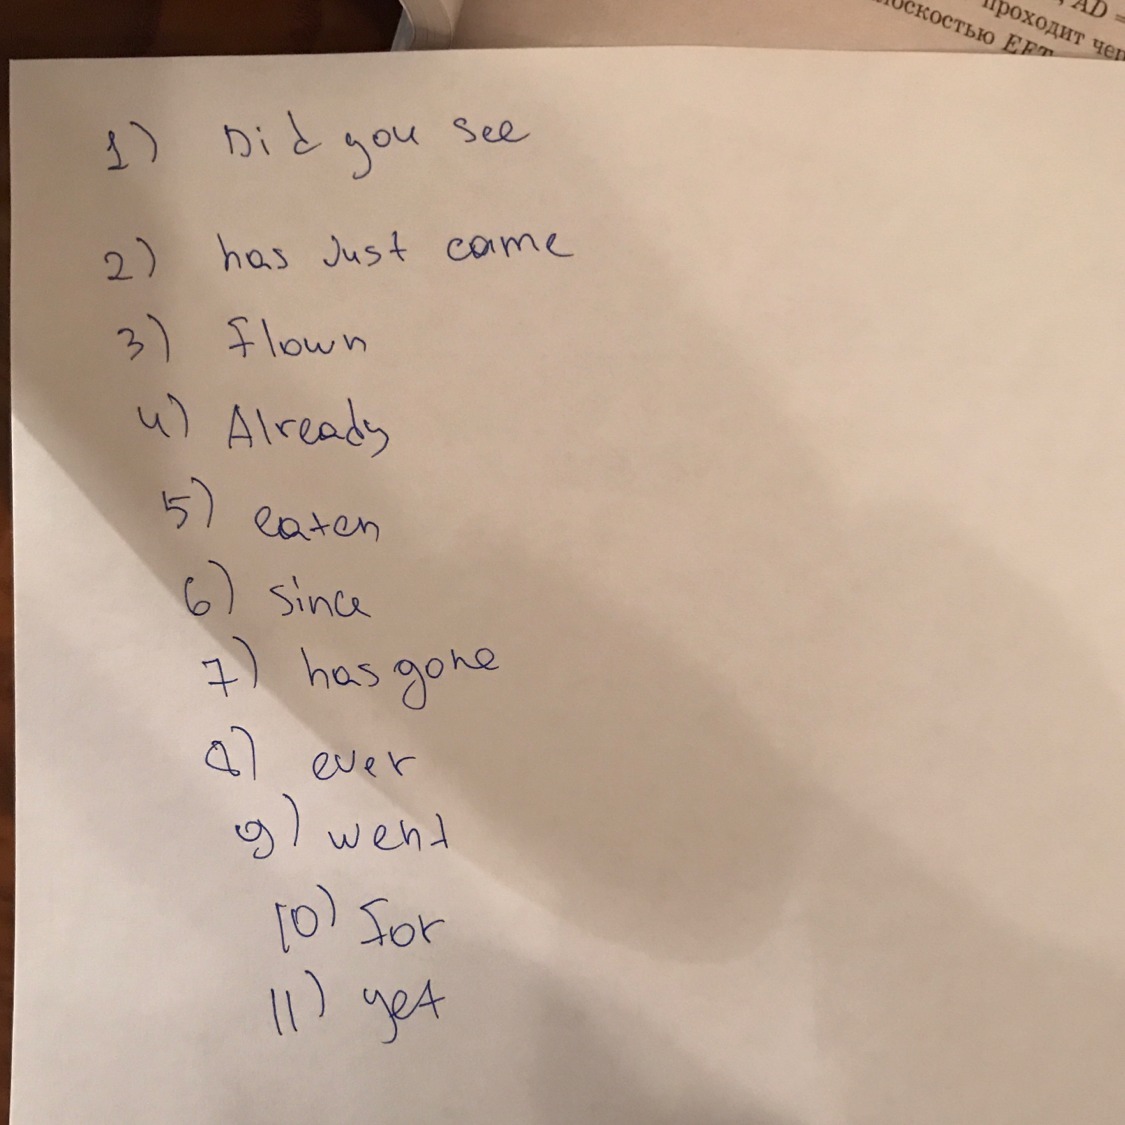 , AD =
проходит чер
лоскостью EFT
1) Did you see
2) has Just came
3) flown
4) Already
5) eaten
6) since
7) has gone
8) ever
9) went
10) for
11) yet